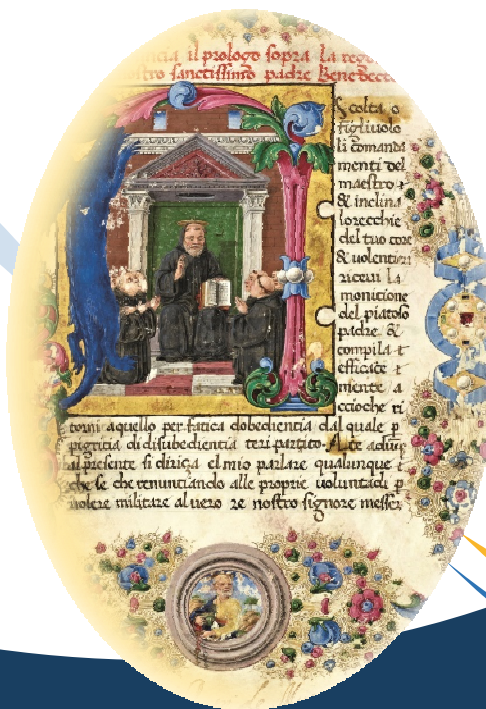 ncia il prologo sopra la rego
stro sanctissimo padre Benedect
scolta o
figliuolo
li comanda
menti del
maestro
& inclina
lorecchie
del tuo core
& uolentieri
riceui la
monitione
del piatoso
padre &
compila t
efficace t
mente a
ccioche ri
torni aquello per fatica dobedientia dal quale p
pigritia di disubedientia teri partito. A te adūq
al presente si diriça el mio parlare qualunque
che se che renuntiando alle proprie uoluntadi p
uolere militare al uero re nostro signore messer